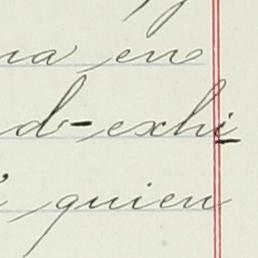 na en
d-exhi
quien